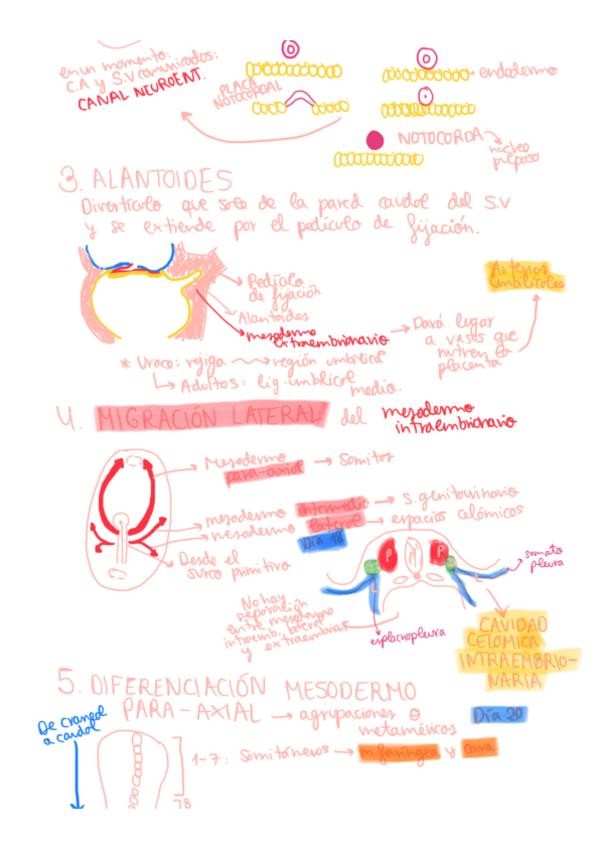 en un momento:
C.A y S.V comunicados:
CANAL NEUROENT.
PLACA
NOTOCORDAL
endodermo
NOTOCORDA
núcleo
pulposo
3. ALANTOIDES
Divertículo que sale de la pared caudal del S.V
y se extiende por el pedículo de fijación.
Pedículo
de fijación
Alantoides
mesodermo
extraembrionario
Dará lugar
a vasos que
nutren la
placenta
Arterias
umbilicales
* Uraco: vejiga región umbilical
Adultos: lig. umbilical medio.
4. MIGRACIÓN LATERAL del mesodermo
intraembrionario
Mesodermo
para-axial → Somitos
mesodermo intermedio → s. genitourinario
mesodermo lateral → espacios celómicos
Día 18
Desde el
surco primitivo
P
P
somato
pleura
No hay
separación
entre mesodermo
intraemb. lateral
y extraembrion
esplacnopleura
CAVIDAD
CELOMICA
INTRAEMBRIO-
NARIA
5. DIFERENCIACIÓN MESODERMO
PARA-AXIAL → agrupaciones
metaméricos
Día 20
De craneal
a caudal
1-7: Somitómeros → m. faríngea y cara